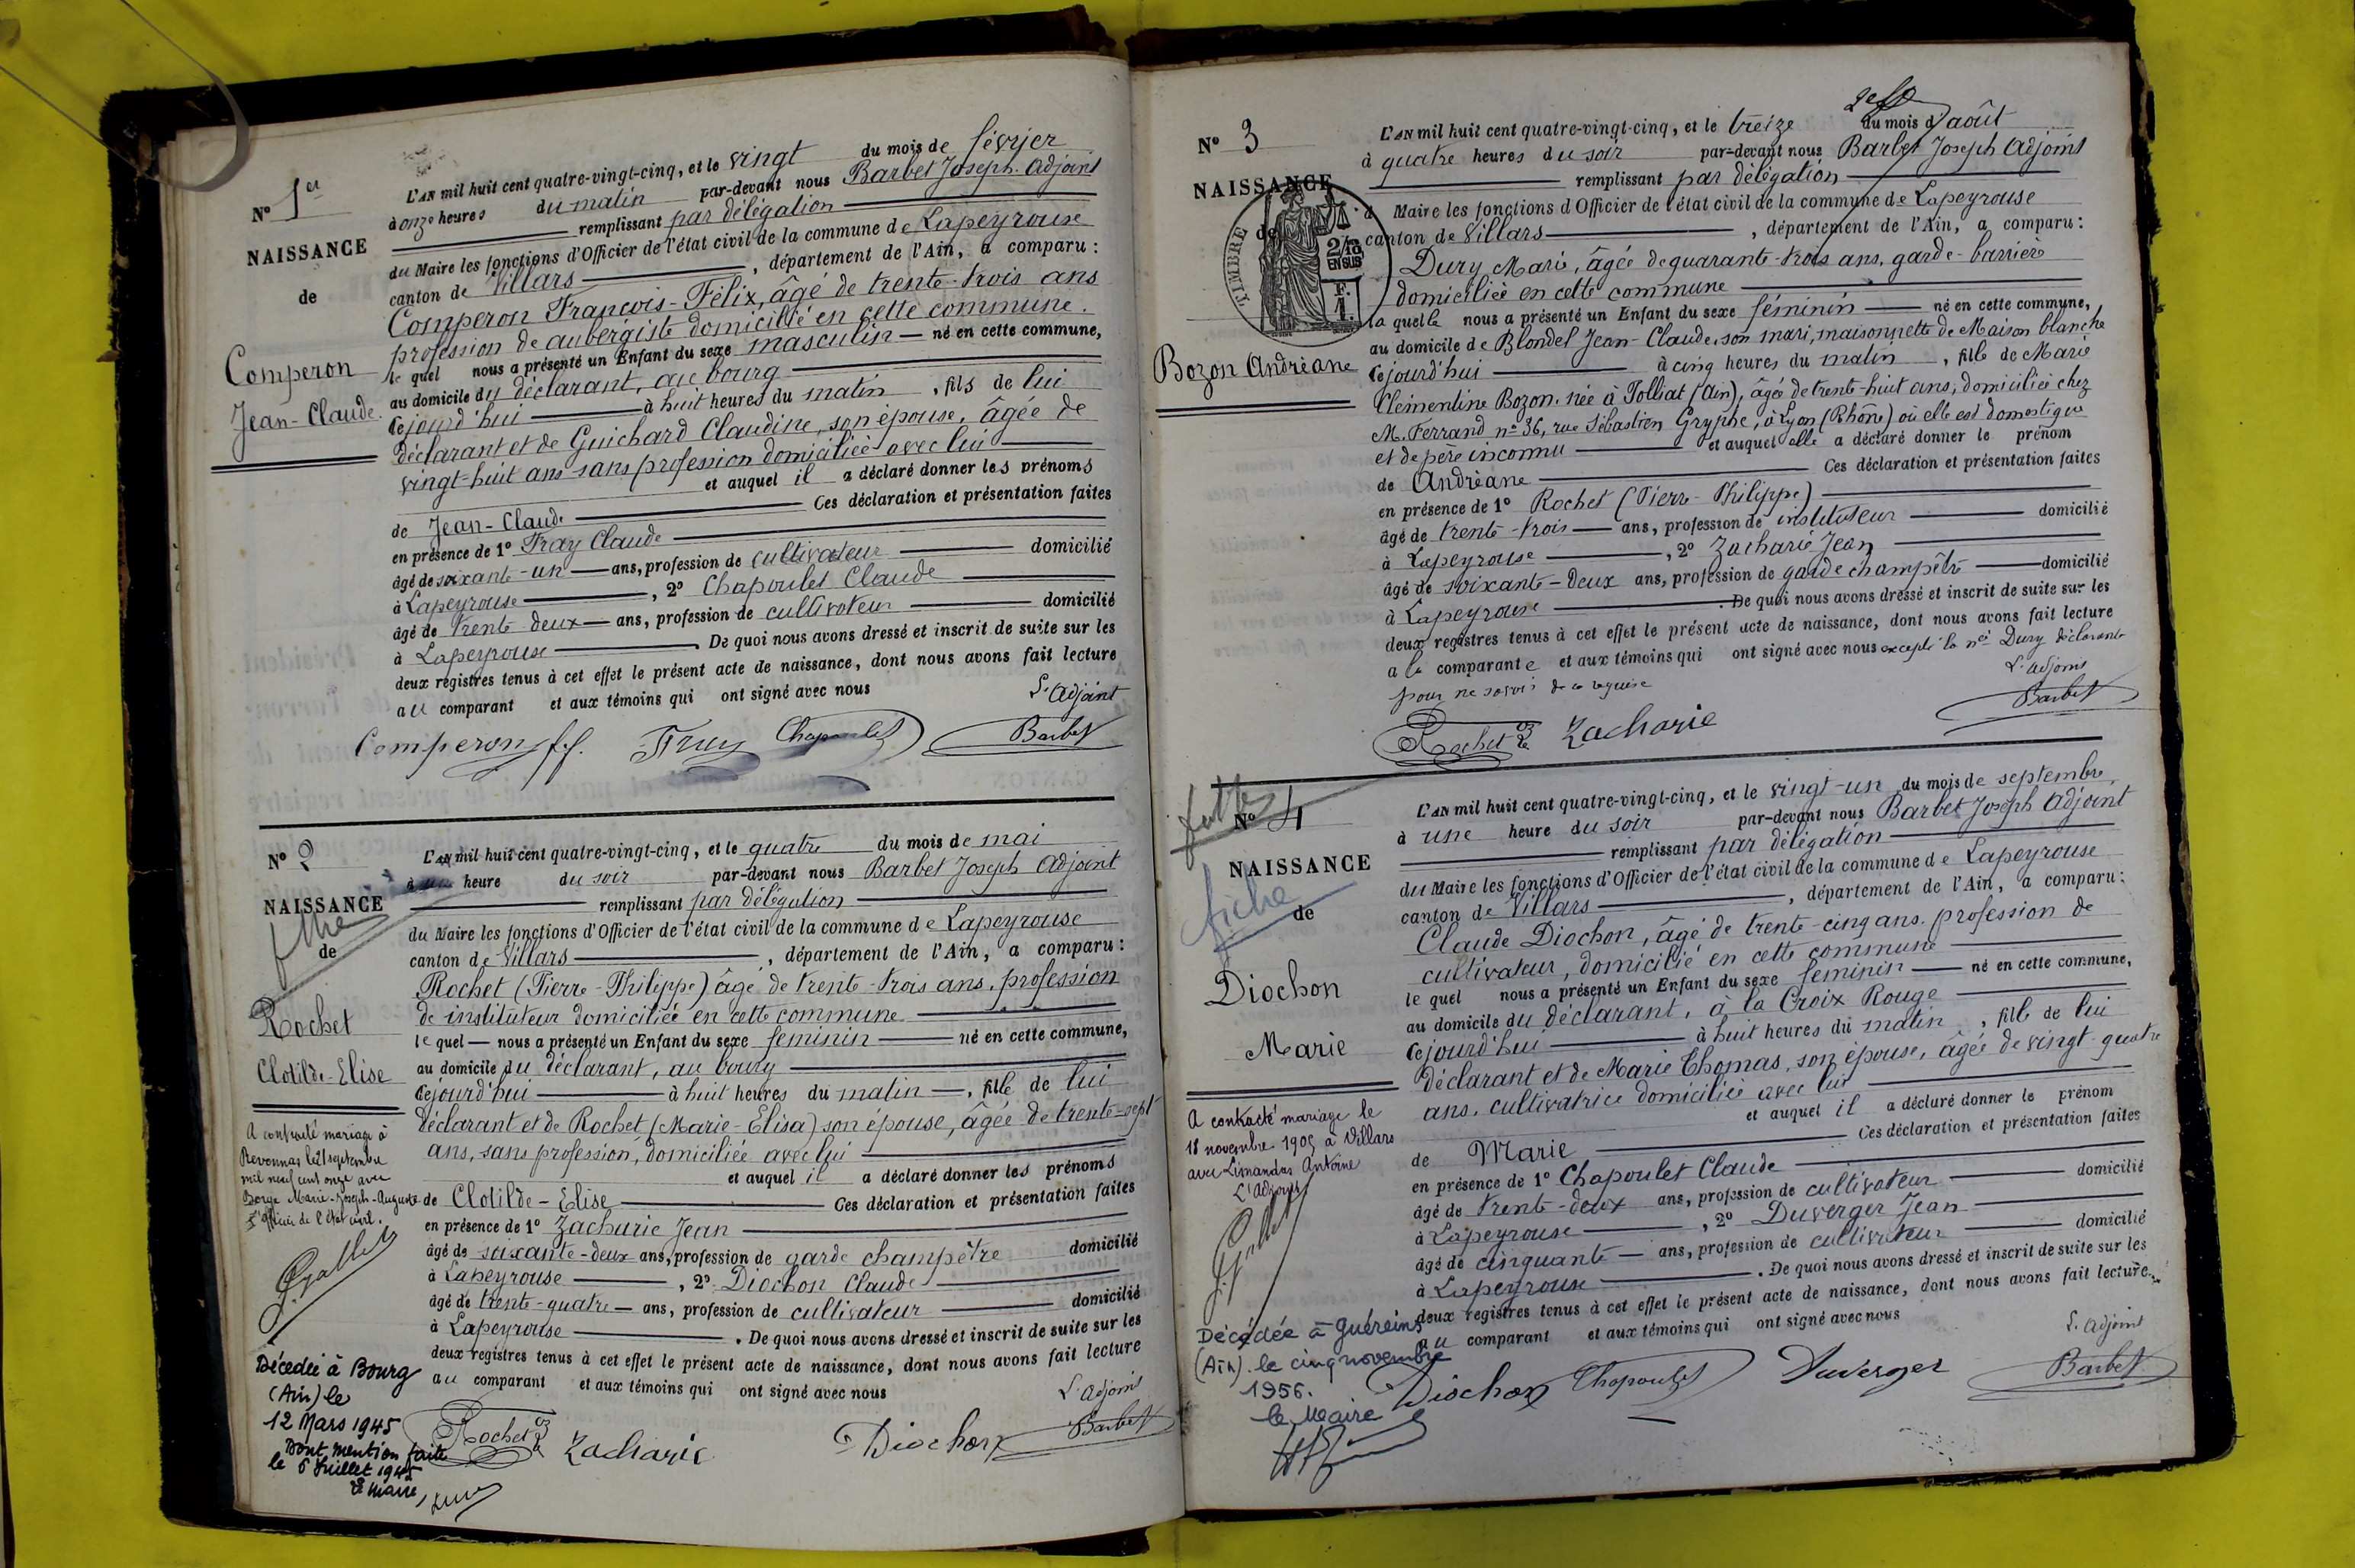 N° 1er
NAISSANCE
de
Comperon
Jean-Claude.
L'AN mil huit cent quatre-vingt-cinq, et le vingt du mois de février
à onze heures du matin par-devant nous Barbet Joseph. Adjoint
remplissant par délégation
du Maire les fonctions d'Officier de l'état civil de la commune de Lapeyrouse
canton de Villars, département de l'Ain, a comparu :
Comperon François-Félix, âgé de trente-trois ans
profession de aubergiste domicilié en cette commune.
le quel nous a présenté un Enfant du sexe masculin né en cette commune,
au domicile du déclarant, au bourg
cejourd'hui à huit heures du matin, fils de lui
déclarant et de Guichard Claudine, son épouse, âgée de
vingt-huit ans sans profession domiciliée avec lui
et auquel il a déclaré donner les prénoms
de Jean-Claude Ces déclaration et présentation faites
en présence de 1° Fray Claude
âgé de soixante-un ans, profession de cultivateur domicilié
à Lapeyrouse, 2° Chapoulet Claude
âgé de trente deux ans, profession de cultivateur domicilié
à Lapeyrouse. De quoi nous avons dressé et inscrit de suite sur les
deux registres tenus à cet effet le présent acte de naissance, dont nous avons fait lecture
au comparant et aux témoins qui ont signé avec nous
L'adjoint
Comperon f.f. Fray Chapoulet Barbet
N° 2
NAISSANCE
de
Rochet
Clotilde-Elise
A contracté mariage à
Revonnas le 21 septembre
mil neuf cent onze avec
Borge Marie-Joseph-Auguste
L'officier de l'état civil.
J. Gallet
Décédée à Bourg
(Ain) le
12 Mars 1945
Dont mention faite
le 6 Juillet 1945
Le Maire,
L'AN mil huit cent quatre-vingt-cinq, et le quatre du mois de mai
à une heure du soir par-devant nous Barbet Joseph Adjoint
remplissant par délégation
du Maire les fonctions d'Officier de l'état civil de la commune de Lapeyrouse
canton de Villars, département de l'Ain, a comparu :
Rochet (Pierre-Philippe) âgé de trente-trois ans, profession
de instituteur domiciliée en cette commune
le quel nous a présenté un Enfant du sexe féminin né en cette commune,
au domicile du déclarant, au bourg
cejourd'hui à huit heures du matin, fille de lui
déclarant et de Rochet (Marie-Elisa) son épouse, âgée de trente-sept
ans, sans profession, domiciliée avec lui
et auquel il a déclaré donner les prénoms
de Clotilde-Elise Ces déclaration et présentation faites
en présence de 1° Zacharie Jean
âgé de soixante-deux ans, profession de garde champêtre domicilié
à Lapeyrouse, 2° Diochon Claude
âgé de trente-quatre ans, profession de cultivateur domicilié
à Lapeyrouse. De quoi nous avons dressé et inscrit de suite sur les
deux registres tenus à cet effet le présent acte de naissance, dont nous avons fait lecture
au comparant et aux témoins qui ont signé avec nous
L'adjoint
Rochet Zacharie Diochon Barbet
N° 3
NAISSANCE
de
TIMBRE
EN SUS
Bozon Andréane
L'AN mil huit cent quatre-vingt-cinq, et le treize du mois d'août
à quatre heures du soir par-devant nous Barbet Joseph Adjoint
remplissant par délégation
Maire les fonctions d'Officier de l'état civil de la commune de Lapeyrouse
canton de Villars, département de l'Ain, a comparu :
Dury Marie, âgée de quarante-trois ans, garde-barrière
domiciliée en cette commune
la quelle nous a présenté un Enfant du sexe féminin né en cette commune,
au domicile de Blondel Jean-Claude, son mari, maisonnette de Maison blanche
cejourd'hui à cinq heures du matin, fille de Marie
Clémentine Bozon, née à Jolliat (Ain), âgée de trente-huit ans, domiciliée chez
M. Ferrand n° 36, rue Sébastien Gryphe, à Lyon (Rhône) où elle est domestique
et de père inconnu et auquel elle a déclaré donner le prénom
de Andréane Ces déclaration et présentation faites
en présence de 1° Rochet (Pierre-Philippe)
âgé de trente-trois ans, profession de instituteur domicilié
à Lapeyrouse, 2° Zacharie Jean
âgé de soixante-deux ans, profession de garde champêtre domicilié
à Lapeyrouse. De quoi nous avons dressé et inscrit de suite sur les
deux registres tenus à cet effet le présent acte de naissance, dont nous avons fait lecture
a la comparante et aux témoins qui ont signé avec nous excepté la née Dury déclarante
pour ne savoir de ce requise
L'adjoint
Rochet Zacharie Barbet
N° 4
NAISSANCE
fiche
de
Diochon
Marie
A contracté mariage le
18 novembre 1905 à Villars
avec Limandas Antoine
L'Adjoint
J. Gallet
Décédée à Guéreins
(Ain) le cinq novembre
1956.
le Maire
L'AN mil huit cent quatre-vingt-cinq, et le vingt-un du mois de septembre
à une heure du soir par-devant nous Barbet Joseph Adjoint
remplissant par délégation
du Maire les fonctions d'Officier de l'état civil de la commune de Lapeyrouse
canton de Villars, département de l'Ain, a comparu :
Claude Diochon, âgé de trente-cinq ans, profession de
cultivateur, domicilié en cette commune
le quel nous a présenté un Enfant du sexe féminin né en cette commune,
au domicile du déclarant, à la Croix Rouge
cejourd'hui à huit heures du matin, fille de lui
déclarant et de Marie Thomas, son épouse, âgée de vingt-quatre
ans, cultivatrice domiciliée avec lui
et auquel il a déclaré donner le prénom
de Marie Ces déclaration et présentation faites
en présence de 1° Chapoulet Claude
âgé de trente-deux ans, profession de cultivateur domicilié
à Lapeyrouse, 2° Duverger Jean
âgé de cinquante ans, profession de cultivateur domicilié
à Lapeyrouse. De quoi nous avons dressé et inscrit de suite sur les
deux registres tenus à cet effet le présent acte de naissance, dont nous avons fait lecture
au comparant et aux témoins qui ont signé avec nous
L'adjoint
Diochon Chapoulet Duverger Barbet